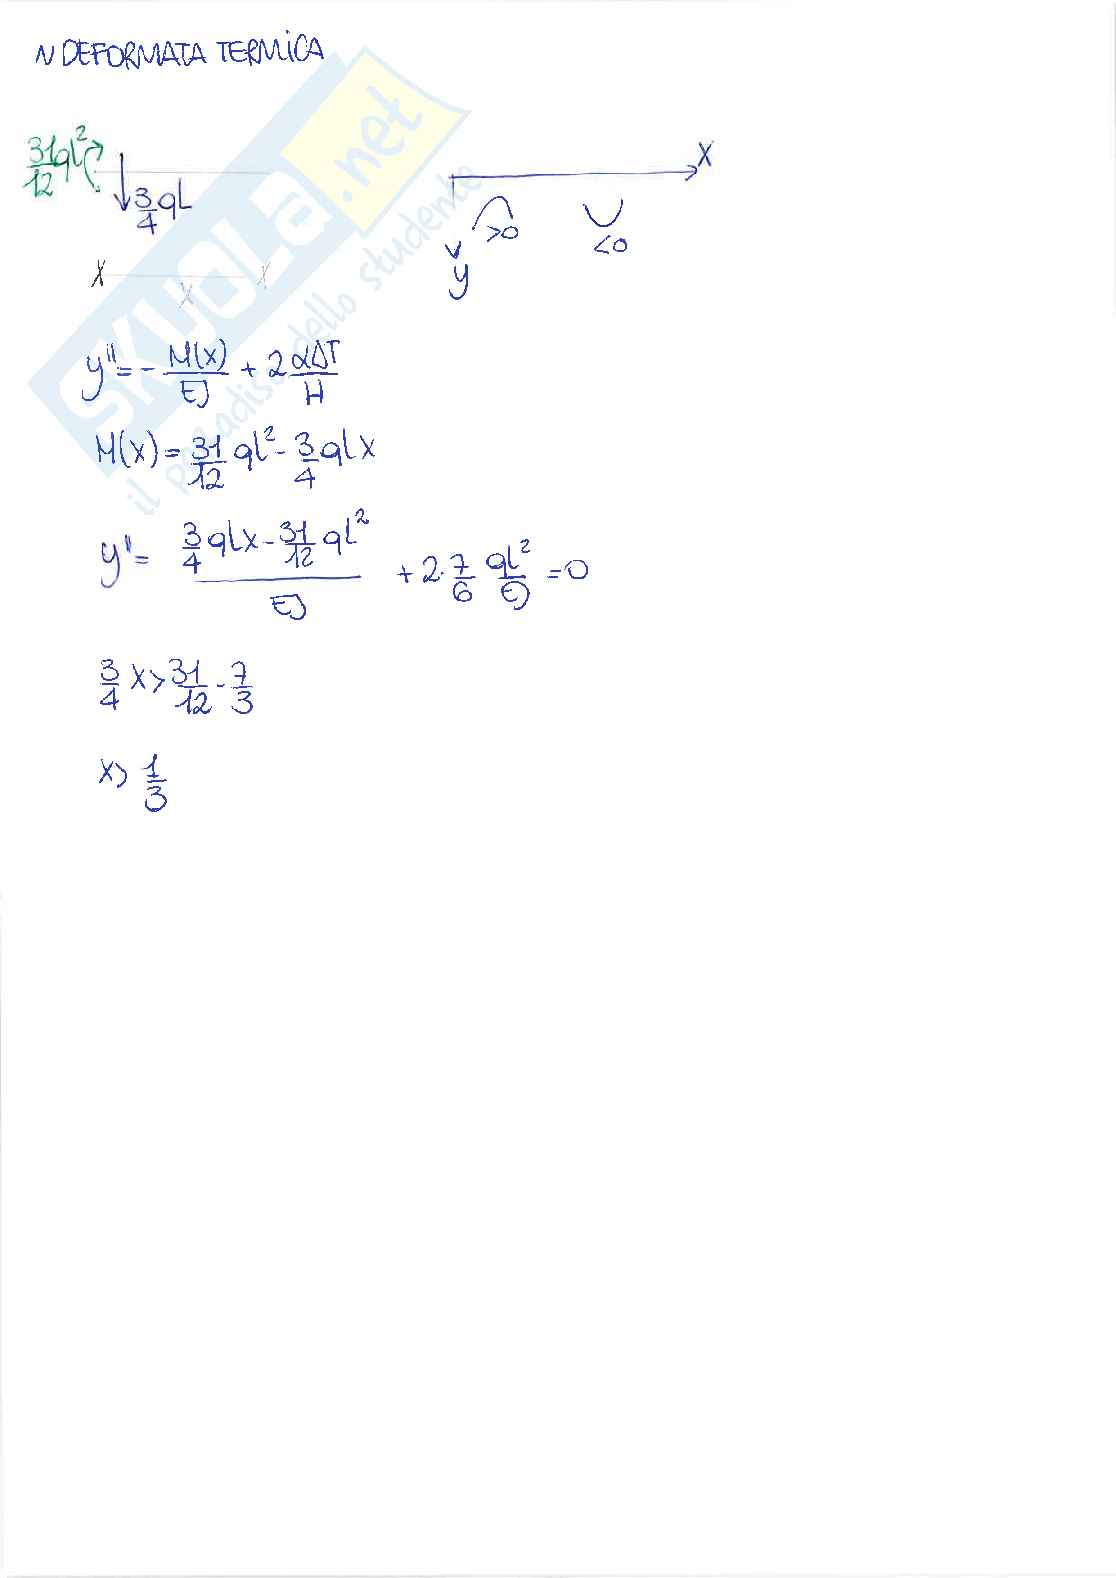 N DEFORMATA TERMICA
31/12 ql²
3/4 qL
X
y
>0
<0
X X X
y'' = - M(x)/EJ + 2 αΔT/H
M(x) = 31/12 ql² - 3/4 qlx
y'' = (3/4 qlx - 31/12 ql²)/EJ + 2·7/6 ql²/EJ = 0
3/4 x > 31/12 - 7/3
x > 1/3
SKUOLA.net
il paradiso dello studente